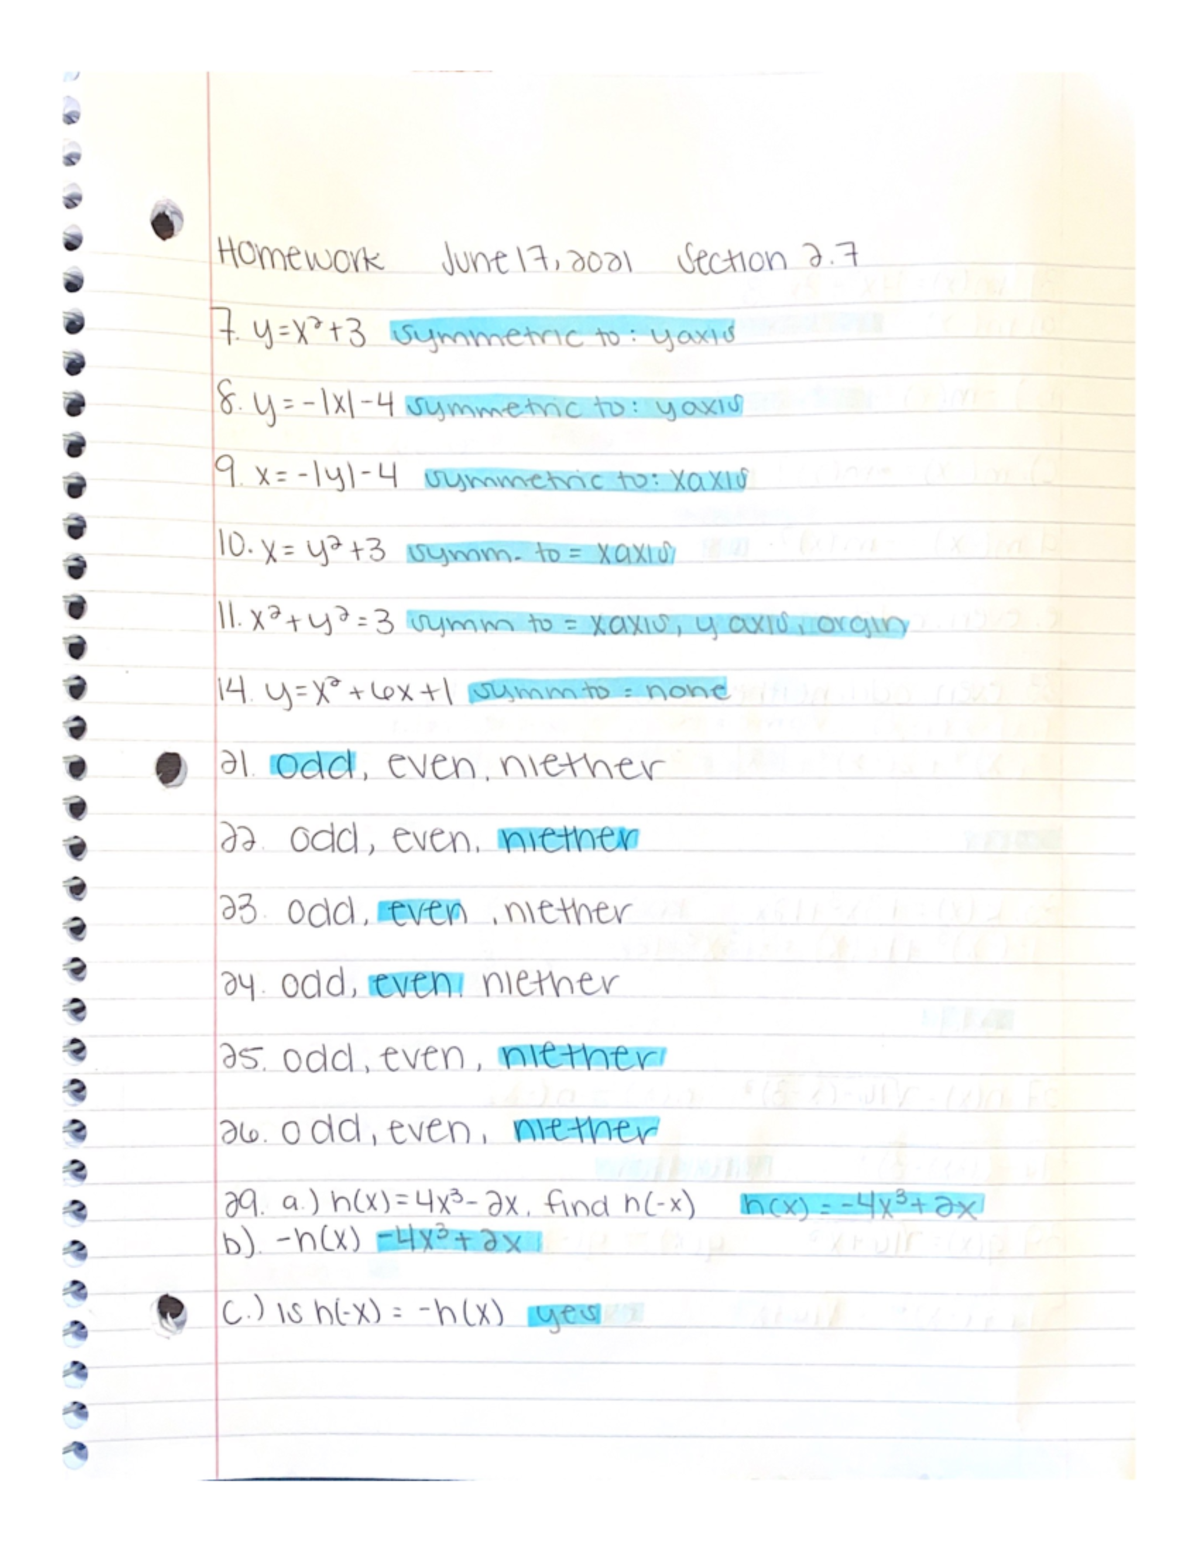 Homework June 17, 2021 Section 2.7
7. y=x²+3 symmetric to: yaxis
8. y=-|x|-4 symmetric to: yaxis
9. x=-|y|-4 symmetric to: xaxis
10. x=y²+3 symm. to = xaxis
11. x²+y²=3 symm to = xaxis, y axis, orgin
14. y=x²+6x+1 symm to = none
21. odd, even, niether
22. odd, even, niether
23. odd, even, niether
24. odd, even, niether
25. odd, even, niether
26. odd, even, niether
29. a.) h(x)=4x³-2x, find h(-x) h(x)=-4x³+2x
b). -h(x) -4x³+2x
c.) is h(-x) = -h(x) yes